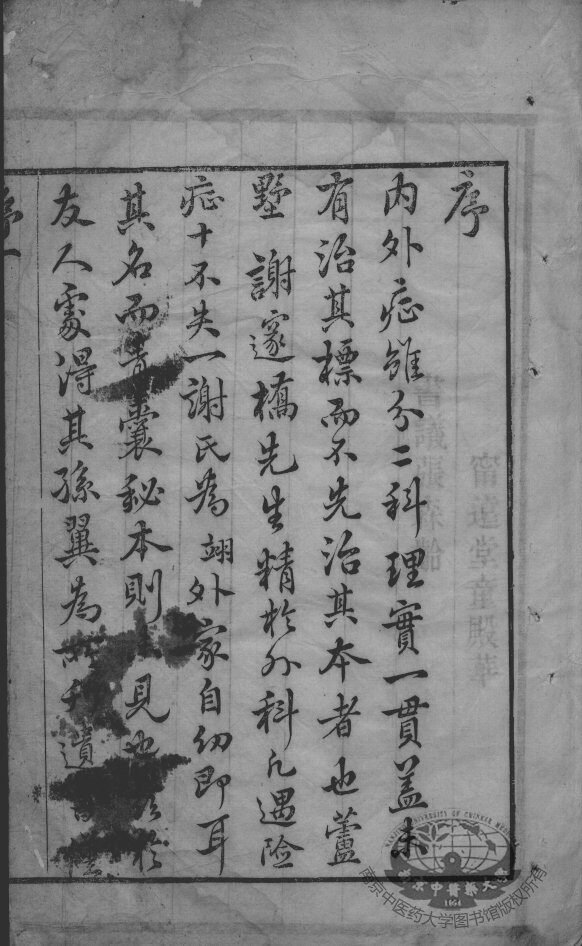 序
内外症雖分二科理實一貫蓋未
有治其標而不先治其本者也蘆
墅謝邃橋先生精於外科凡遇險
症十不失一謝氏為翊外家自幼即耳
其名而青囊秘本則見也於
友人處得其孫翼為遺
序一
南京中醫藥大學
NANJING UNIVERSITY OF CHINESE MEDICINE
1954
南京中医药大学图书馆版权所有